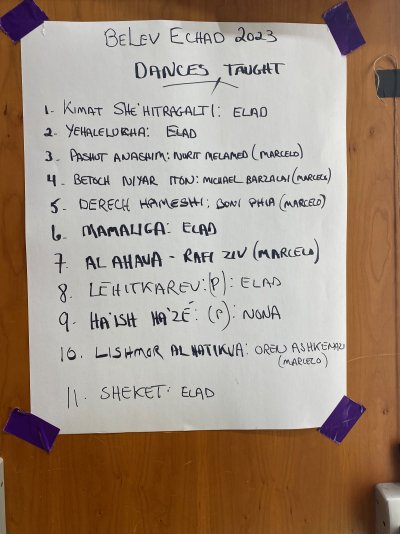 BELEV ECHAD 2023
DANCES TAUGHT
1- KIMAT SHE'HITRAGALTI: ELAD
2- YEHALELUCHA: ELAD
3- PASHUT ANASHIM: NURIT MELAMED (MARCELO)
4- BETOCH NIYAR ITON: MICHAEL BARZALAI (MARCELO)
5- DERECH HAMESHI: BONI PHIA (MARCELO)
6- MAMALIGA: ELAD
7- AL AHAVA - RAFI ZIV (MARCELO)
8. LEHITKAREV: (P): ELAD
9- HA'ISH HA'ZÉ: (P): NONA
10. LISHMOR AL HATIKVA: OREN ASHKENAZI
(MARCELO)
11. SHEKET: ELAD